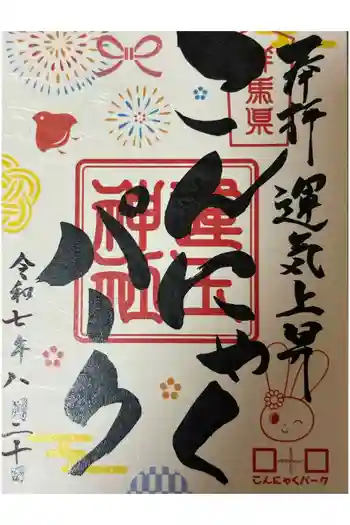 奉拝 運気上昇
群馬県
こんにゃく
パーク
令和七年八月二十日
こんにゃくパーク